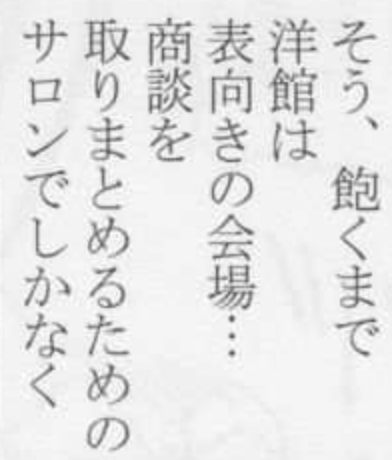 そう、飽くまで
洋館は
表向きの会場…
商談を
取りまとめるための
サロンでしかなく